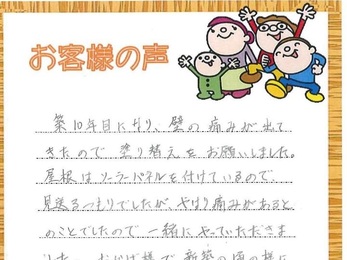 お客様の声
築10年目になり、壁の痛みが出て
きたので 塗り替えを お願いしました。
屋根は ソーラーパネルを付けているので、
見送るつもりでしたが、やはり痛みがあると
のことでしたので 一緒に やっていただきま
した。おかげ様で 新築の頃の様に